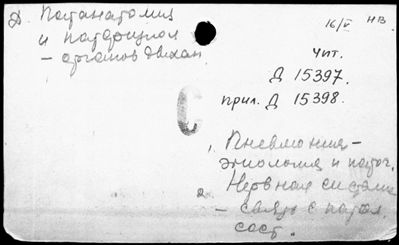 Д. Патанатомия
и патфизиол.
- органов дыхан.
16/V НВ
Чит.
Д 15397.
прил. Д 15398.
С
1. Пневмония -
этиология и патог.
2. Нервная система
- связь с патол.
сост.